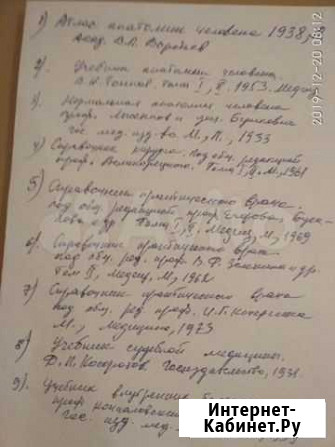 1) Атлас анатомии человека 1938,
акад. В.П. Воробьев
2) Учебник анатомии человека
В.Н. Тонков. Том I, II, 1953. Медгиз
3) Нормальная анатомия человека
проф. Лысенков и
Гос. мед. изд-во. М., Л., 1933
4) Справочник хирурга. Под общ. редакцией
проф. Великорецкого. Том I, М, 1961
5) Справочник практического врача.
под общ. редакцией, проф. Егорова,
и др. Том I, II, Медгиз, М, 1959
6. Справочник практического врача
под общ. ред. проф. В.Ф. Зеленина и др.
Том II, Медгиз, М, 1962
7) Справочник практического врача
под общ. ред проф. И.Г. Кочергина
М., Медицина, 1973
8) Учебник судебной медицины.
Д.П. Косоротов Госиздательство, 1931.
9) Учебник внутренних
проф. Кончаловский
Гос. изд. мед.
2019-12-20 08:12
Интернет-Купит.ком